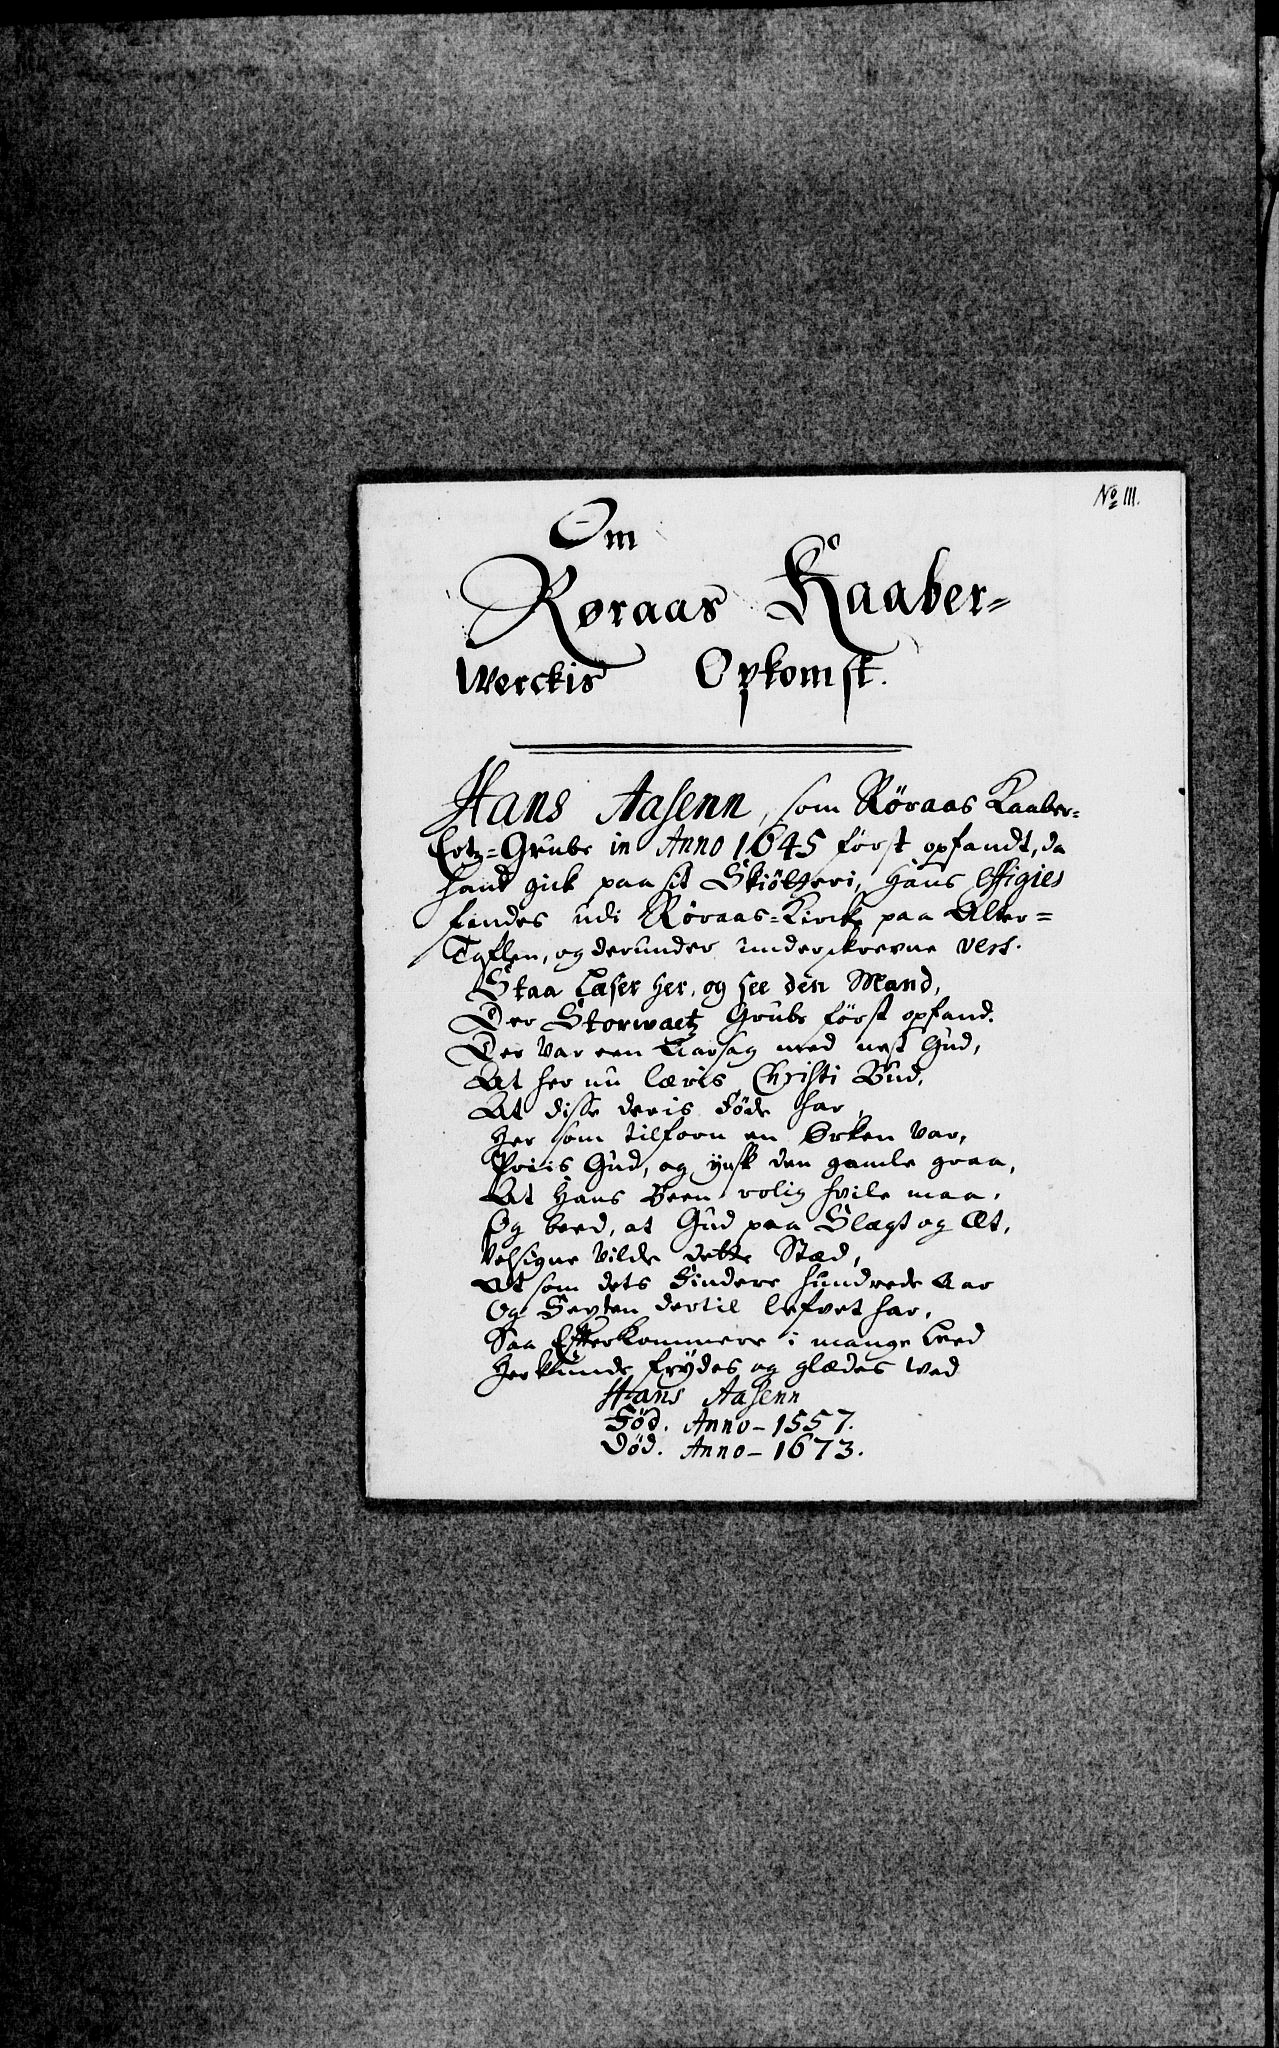 No III.
Om
Røraas Kaaber=
Werckis Opkomst.
Hans Aasenn, som Röraas Kaaber=
Ertz=Grube in Anno 1645 först opfandt, da
hand gick paa sit Skiötteri, hans Effigies
findes udi Röraas=Kircke paa Alter=
Taflen, og derunder underskrevne vers.
Staa Læser her, og see den Mand,
Der Storwartz Grube först opfand.
Der var een Aarsag med nest Gud,
At her nu læris Christi Bud,
At disse deris Föde har,
Her som tilforn en Örken var,
Priis Gud, og ynsk den gamle graa,
At Hans Been rolig hvile maa,
Og beed, at Gud paa Slægt og Æt,
Velsigne vilde dette Stæd,
At som dets Findere hundrede Aar
Og Sexten dertil lefvet har,
Saa Efterkommere i mange Leed
Her kunde frydes og glædes ved
Hans Aasenn
Föd. Anno - 1557.
Död. Anno - 1673.